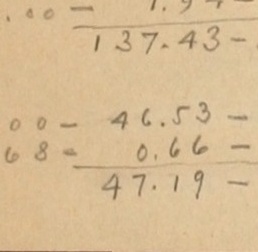 .00 - 1.94 -
137.43 -
00 - 46.53 -
68 - 0.66 -
47.19 -